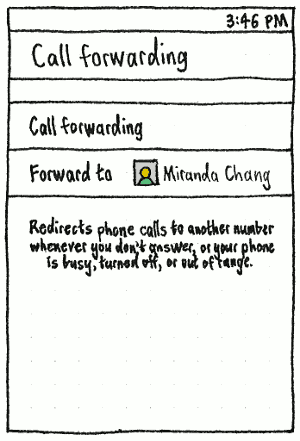 3:46 PM
Call forwarding
Call forwarding
Forward to Miranda Chang
Redirects phone calls to another number
whenever you don't answer, or your phone
is busy, turned off, or out of range.